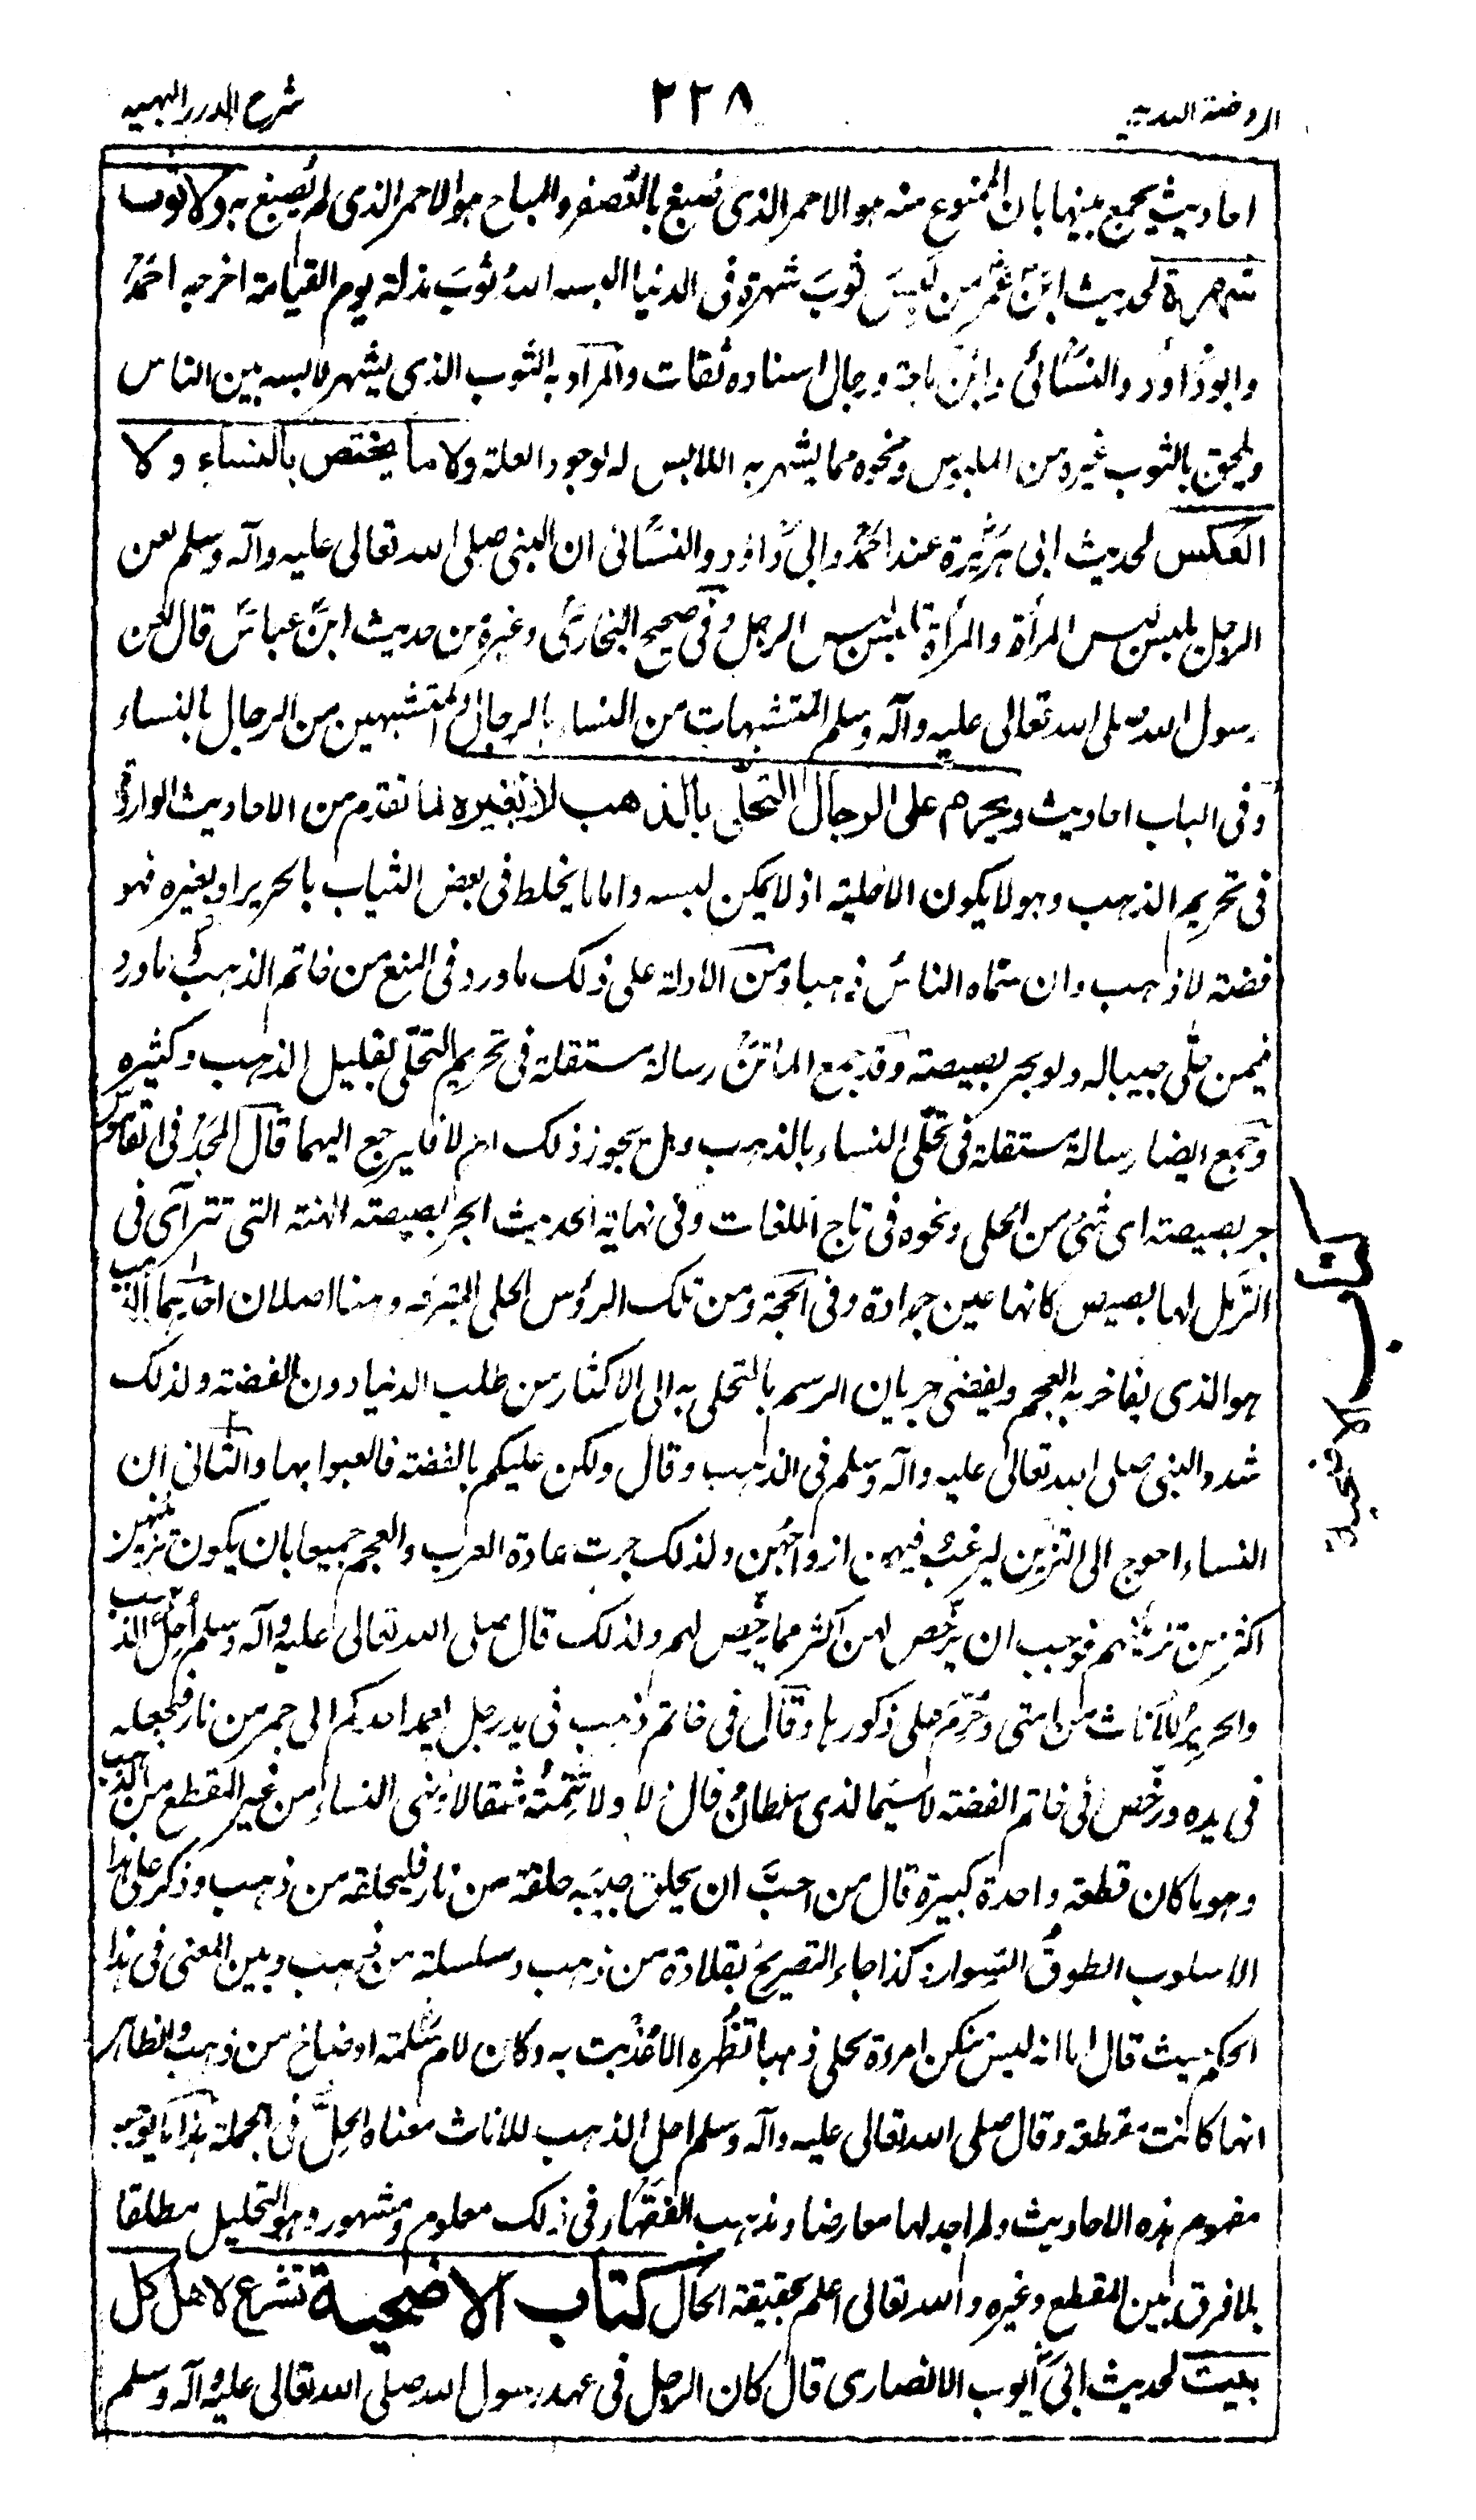 الروضة الندية
٢٢٨
شرح الدرر البهية
احاديث يجمع بينها بان الممنوع منه هو الاحمر الذى صبغ بالعصفر والمباح هو الاحمر الذى لم يصبغ به ولا ثوب
شهرة لحديث ابن عمر من لبس ثوب شهرة فى الدنيا البسه الله ثوب مذلة يوم القيامة اخرجه احمد
وابو داؤد والنسائى وابن ماجة ورجال اسناده ثقات والمراد به الثوب الذى يشهر لابسه بين الناس
ويلحق بالثوب غيره من الملبوس ونحوه مما يشهر به اللابس له لوجود العلة ولا ما يختص بالنساء ولا
العكس لحديث ابى هريرة عند احمد وابى داؤد والنسائى ان النبى صلى الله تعالى عليه وآله وسلم لعن
الرجل يلبس لبس المرأة والمرأة تلبس لبس الرجل وفى صحيح البخارى وغيره من حديث ابن عباس قال لعن
رسول الله صلى الله تعالى عليه وآله وسلم المتشبهات من النساء بالرجال والمتشبهين من الرجال بالنساء
وفى الباب احاديث ويحرم على الرجال التحلى بالذهب لا بغيره لما تقدم من الاحاديث الواردة
فى تحريم الذهب وهو لا يكون الا حلية اذ لا يمكن لبسه واما ما يخلط فى بعض الثياب بالحرير او بغيره فهو
فضة لا ذهب وان سماه الناس ذهبا ومن الادلة على ذلك ما ورد فى المنع من خاتم الذهب وما ورد
فيمن حلى حبيبا له ولو بخر بصيصة وقد جمع الماتن رسالة مستقلة فى تحريم التحلى بقليل الذهب وكثيره
وجمع ايضا رسالة مستقلة فى تحلى النساء بالذهب وهل يجوز ذلك ام لا فليرجع اليهما قال المجد فى القاموس
خر بصيصة اى شىء من الحلى ونحوه فى تاج اللغات وفى نهاية الحديث الخر بصيصة الهنة التى تترآى فى
الرمل لها بصيص كانها عين جرادة وفى الحجة ومن تلك الرؤس الحلى المترفه وهنا اصلان احدهما ان الذهب
هو الذى يفاخر به العجم ويفضى جريان الرسم بالتحلى به الى الاكثار من طلب الدنيا دون الفضة ولذلك
شدد النبى صلى الله تعالى عليه وآله وسلم فى الذهب وقال ولكن عليكم بالفضة فالعبوا بها والثانى ان
النساء احوج الى التزين ليرغب فيهن ازواجهن ولذلك جرت عادة العرب والعجم جميعا بان يكون تزينهن
اكثر من تزينهم فوجب ان يرخص لهن اكثر مما يرخص لهم ولذلك قال صلى الله تعالى عليه وآله وسلم احل الذهب
والحرير للاناث من امتى وحرم على ذكورها وقال فى خاتم ذهب فى يد رجل يعمد احدكم الى جمر من نار فيجعله
فى يده ورخص فى خاتم الفضة لا سيما لذى سلطان قال ولا تتمه مثقالا ونهى النساء من غير المقطع من الذهب
وهو ما كان قطعة واحدة كبيرة قال من احب ان يحلق حبيبه حلقة من نار فليحلقه من ذهب وذكر على هذا
الاسلوب الطوق والسوار وكذا جاء التصريح بقلادة من ذهب وسلسلة من ذهب وبين المعنى فى هذا
الحكم حيث قال اما انه ليس منكن امرءة تحلى ذهبا تظهره الا عذبت به وكان لام سلمة اوضاح من ذهب والظاهر
انها كانت مقطعة وقال صلى الله تعالى عليه وآله وسلم احل الذهب للاناث معناه الحل فى الجملة هذا ما يوجبه
مفهوم هذه الاحاديث ولم اجد لها معارضا ومذهب الفقهاء فى ذلك معلوم ومشهور وهو التحليل مطلقا
بلا فرق بين المقطع وغيره والله تعالى اعلم بحقيقة الحال كتاب الاضحية تشرع لاهل كل
بيت لحديث ابى ايوب الانصارى قال كان الرجل فى عهد رسول الله صلى الله تعالى عليه وآله وسلم
كتاب الاضحية